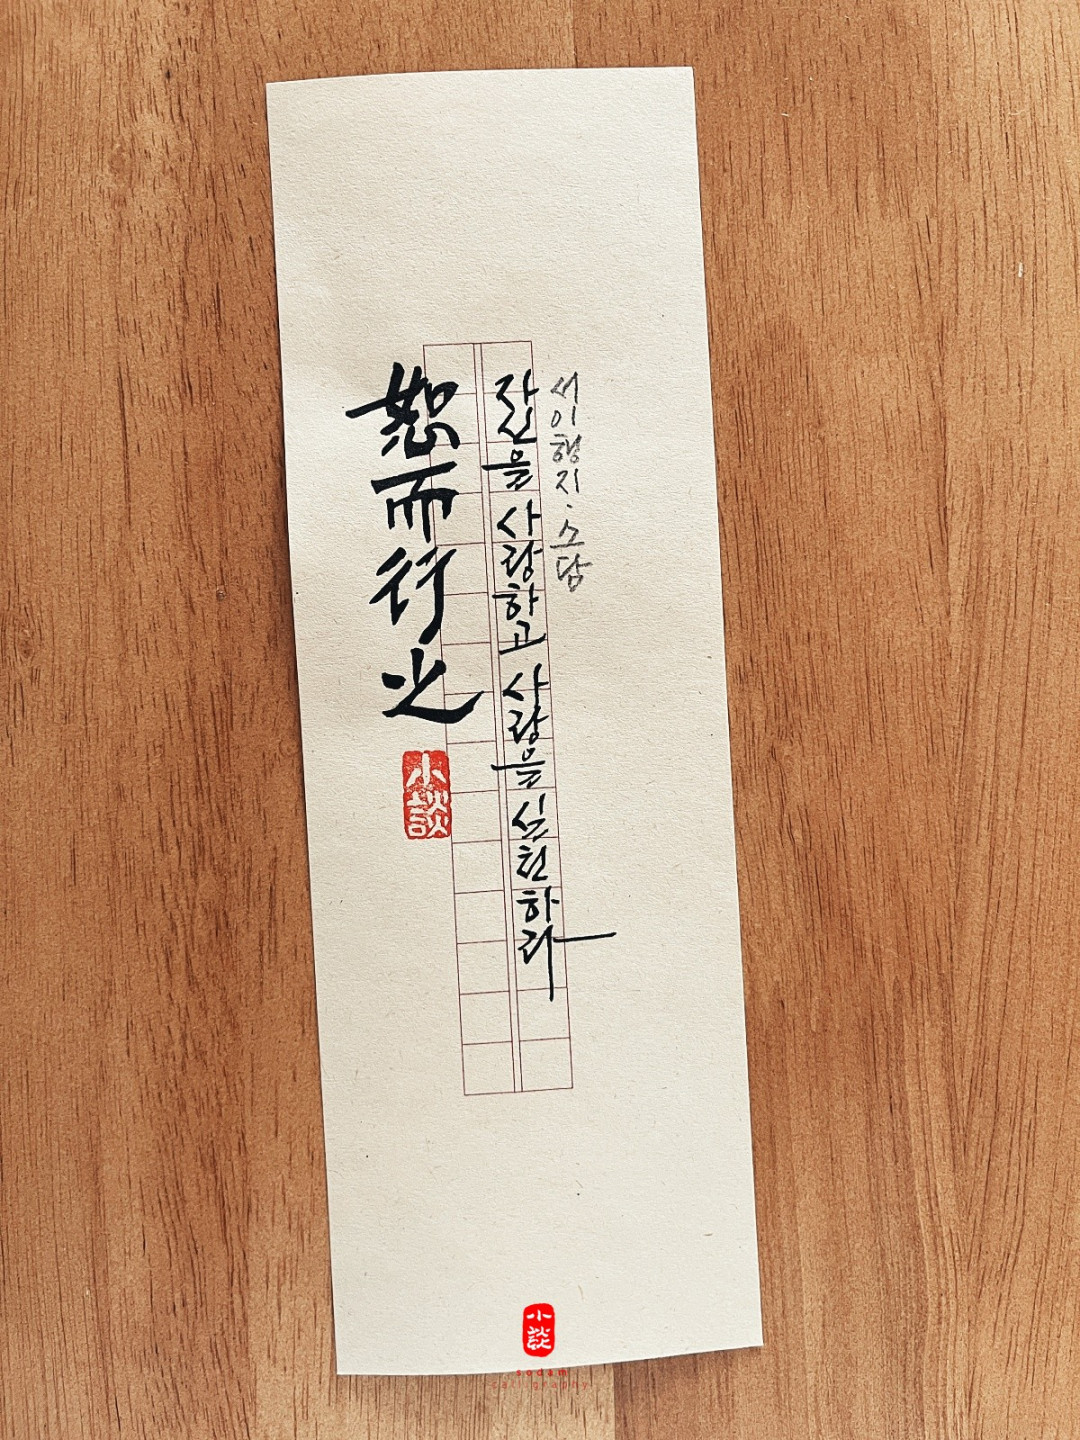 恕而行之
小談
자신을 사랑하고 사랑을 실천하라
서이행지·소담
小談
sodam
calligraphy